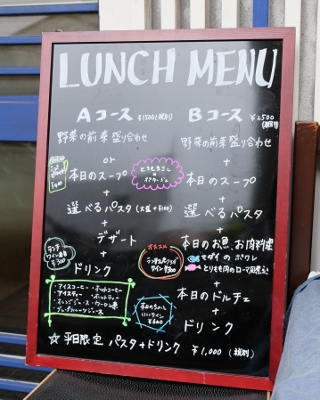 LUNCH MENU
Aコース ¥1500(税別)
野菜の前菜盛り合わせ
or
本日のスープ
+
選べるパスタ (大盛+¥100)
+
デザート
+
ドリンク
・アイスコーヒー ・ホットコーヒー
・アイスティー ・ホットティー
・オレンジジュース ・ウーロン茶
・グレープフルーツジュース
とうもろこし
ポタージュ
ランチ
ワイン
¥300
Bコース ¥2500
(税別)
野菜の前菜盛り合わせ
+
本日のスープ
+
選べるパスタ
+
本日のお魚、お肉料理
マダイのポワレ
とりもも肉のローマ風煮込
+
本日のドルチェ
+
ドリンク
オススメ
ワイン ¥500
☆平日限定 パスタ+ドリンク ¥1,000 (税別)